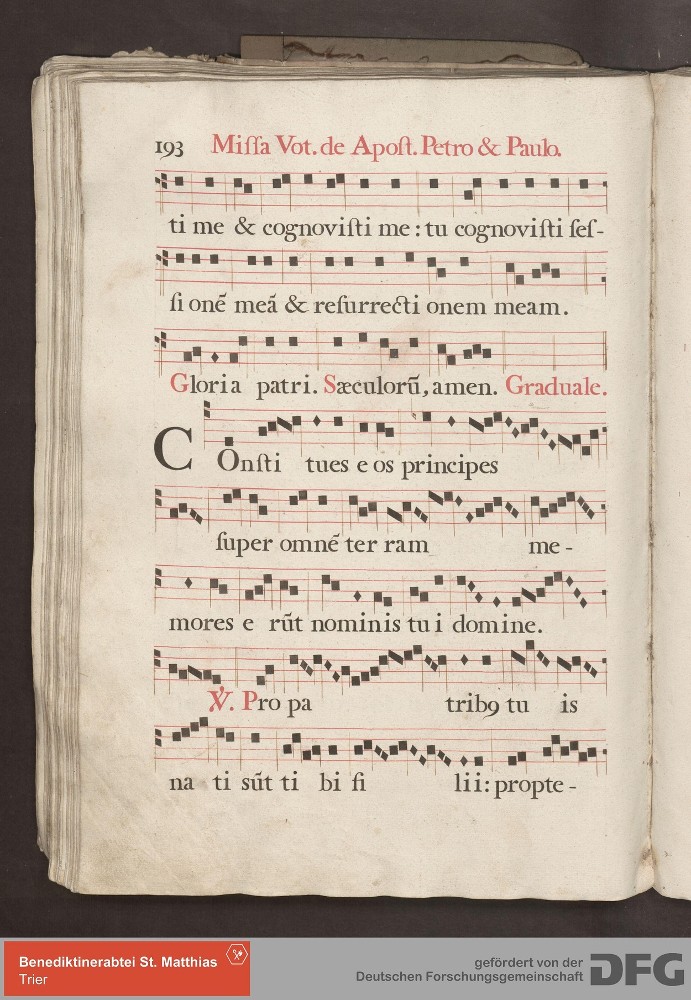 193 Miſſa Vot. de Apoſt. Petro & Paulo.
ti me & cognoviſti me : tu cognoviſti ſeſ-
ſi onē meā & reſurrecti onem meam.
Gloria patri. Sæculorū, amen. Graduale.
COnſti tues e os principes
ſuper omnē ter ram me -
mores e rūt nominis tu i domine.
℣. Pro pa trib9 tu is
na ti sūt ti bi fi lii : propte -
Benediktinerabtei St. Matthias
Trier
gefördert von der
Deutschen Forschungsgemeinschaft
DFG